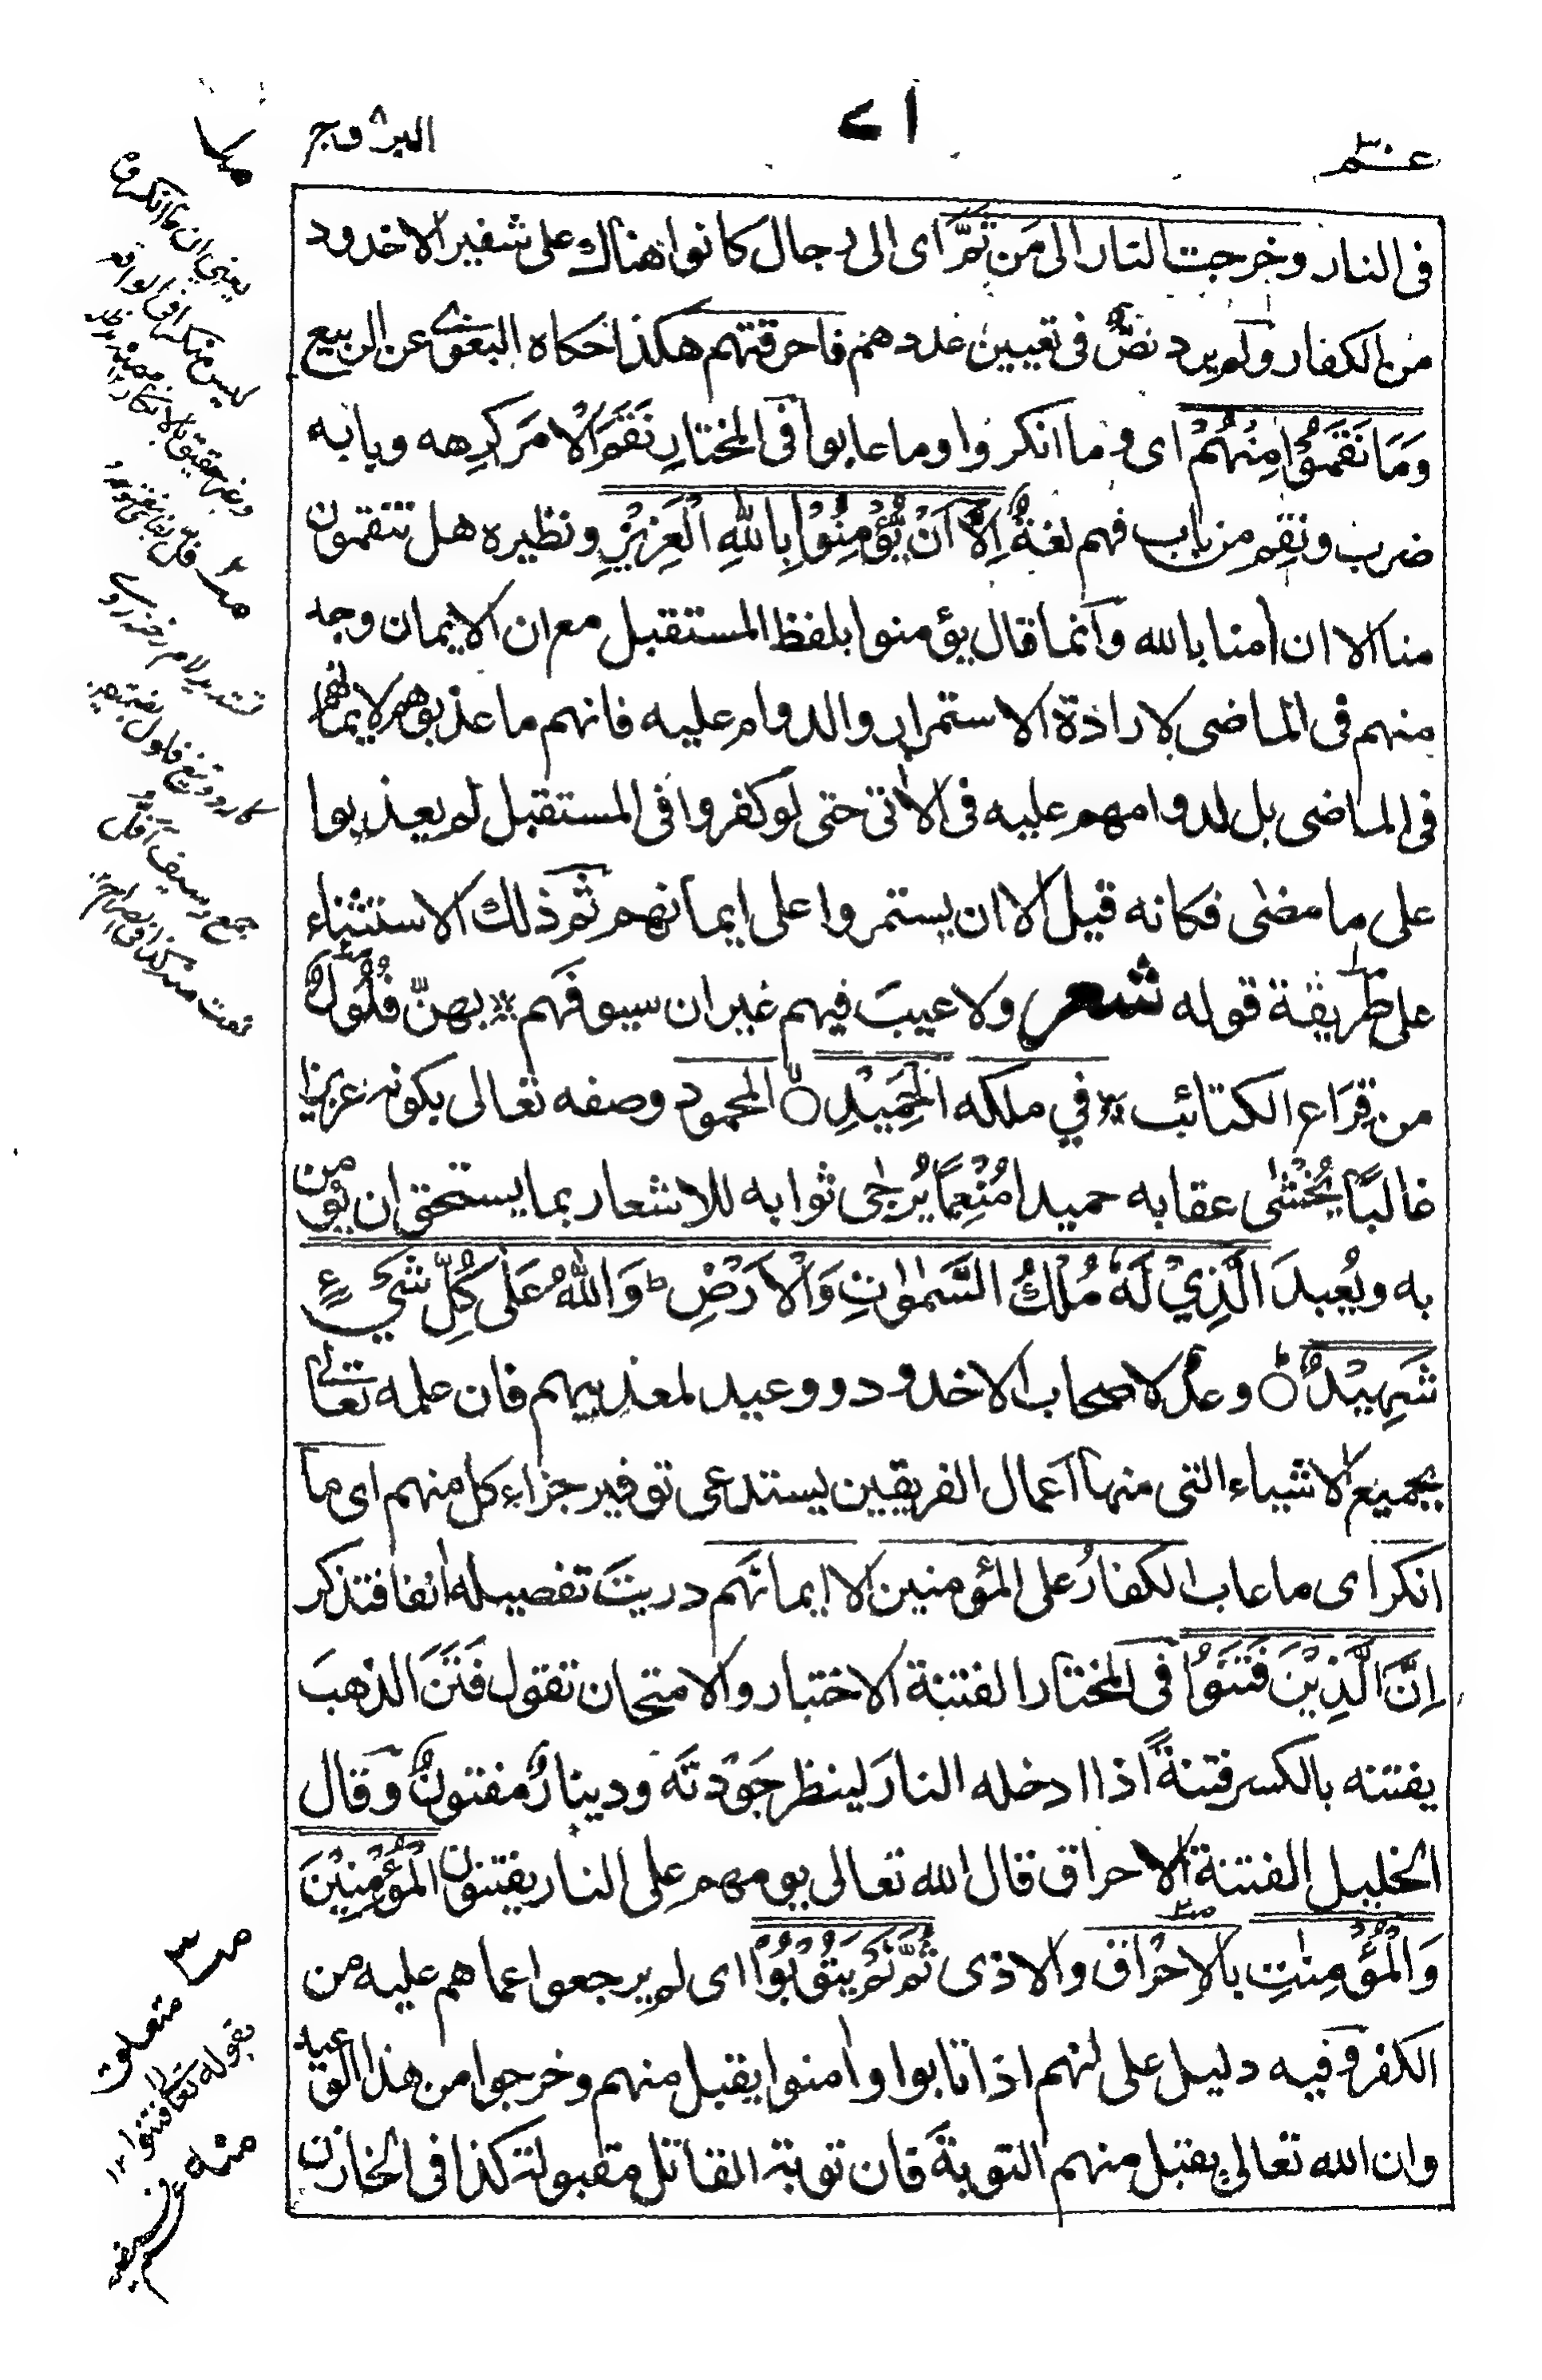 عـمّ ٣٠
٧١
البروج ٨
فى النار وخرجت النار الى مَن ثَمَّ اى الى رجال كانوا هناك على شفير الاخدود
من الكفار ولم يرد نصٌّ فى تعيين عددهم فاحرقتهم هكذا حكاه البغوى عن الربيع
وَمَا نَقَمُوْا مِنْهُمْ اى وما انكروا وما عابوا فى المختار نَقَمَ الامرَ كرِهه وبابه
ضرب ونقِم من باب فهم لغةٌ اِلَّا اَنْ يُّؤْمِنُوْا بِاللّٰهِ الْعَزِيْزِ ونظيره هل تنقمون
منا الا ان اٰمنا بالله وانما قال يؤمنوا بلفظ المستقبل مع ان الايمان وجد
منهم فى الماضى لارادة الاستمرار والدوام عليه فانهم ما عذبوهم لايمانهم
فى الماضى بل لدوامهم عليه فى الاٰتى حتى لو كفروا فى المستقبل لم يعذبوا
على ما مضٰى فكانه قيل الا ان يستمروا على ايمانهم ثم ذلك الاستثناء
على طريقة قوله شعر ولا عيبَ فيهم غيران سيوفَهم ٭ بهنّ فُلُولٌ
من قِرَاع الكتائب ٭ في ملكه الْحَمِيْدِ ○ المحمود وصفه تعالى بكونه عزيزا
غالبًا يُخْشٰى عقابه حميدا مُنْعِمًا يُرجٰى ثوابه للاشعار بما يستحق ان يؤمن
به ويُعبدَ الَّذِيْ لَهٗ مُلْكُ السَّمٰوٰتِ وَالْاَرْضِ ط وَاللّٰهُ عَلٰى كُلِّ شَيْءٍ
شَهِيْدٌ ○ وعدٌ لاصحاب الاخدود ووعيد لمعذبيهم فان علمه تعالى
بجميع الاشياء التى منها اعمال الفريقين يستدعى توفير جزاءِ كل منهم اى ما
انكر اى ما عاب الكفارُ على المؤمنين الا ايمانَهم دريتَ تفصيله اٰنفا فتذكر
اِنَّ الَّذِيْنَ فَتَنُوا فى المختار الفتنة الاختبار والامتحان تقول فَتَنَ الذهبَ
يفتنه بالكسر فتنةً اذا ادخله النارَ لينظر جَوْدتَه ودينارٌ مفتونٌ وقال
الخليل الفتنة الاحراق قال الله تعالى يومهم على النار يفتنون الْمُؤْمِنِيْنَ
وَالْمُؤْمِنٰتِ بالاِحْرَاق والاذى ثُمَّ لَمْ يَتُوْبُوْا اى لم يرجعوا عما هم عليه من
الكفر وفيه دليل على انهم اذا تابوا واٰمنوا يقبل منهم وخرجوا من هذا الوعيد
وان الله تعالى يقبل منهم التوبةَ فان توبة القاتل مقبولة كذا فى الخازن
يعنى ان ما انكروه
ليس منكرا فى الواقع
تشديد لام
جمع سيف
متعلق
بقوله تعالى فتنوا ١٢
منه